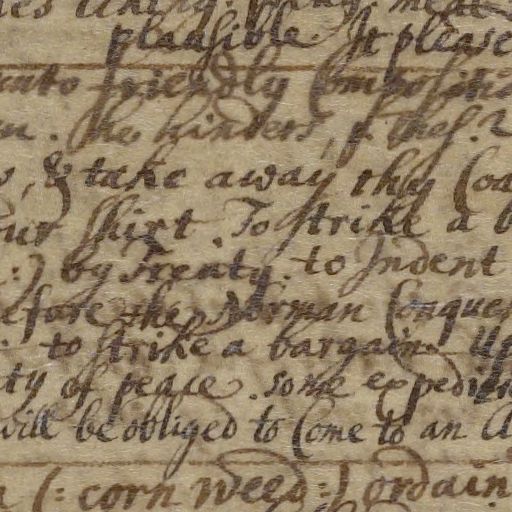 plausible. It please
unto friendly Compositi
. he hinders, 
, & take away thy Coa
our shirt. To strike a b
:) by Treaty. to Indent
efore the Norman Conques
. to strike a bargain. Up
ty of peace. some expedien
will be obliged to Come to an A
(: corn weed :) ordain